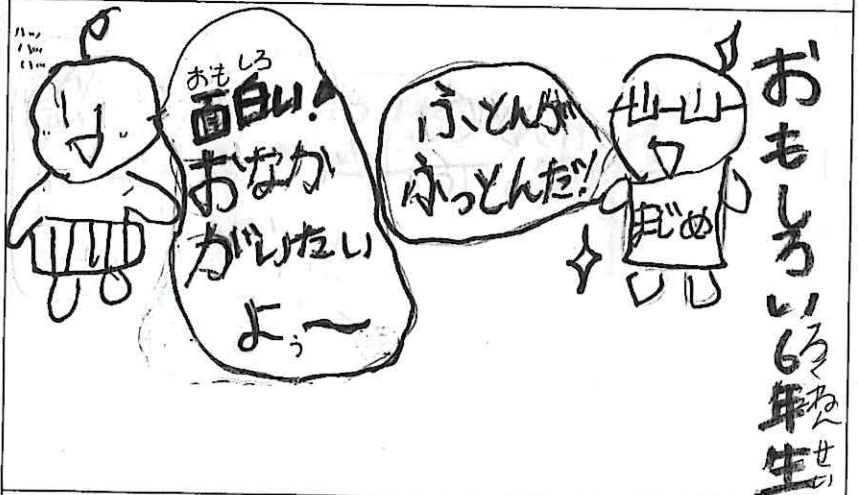 おもしろい6年生
ろくねんせい
まじめ
ふとんが
ふっとんだ!
おもしろ
面白い!
おなか
がいたい
よぅ〜
ハッ
ハッ
ハッ